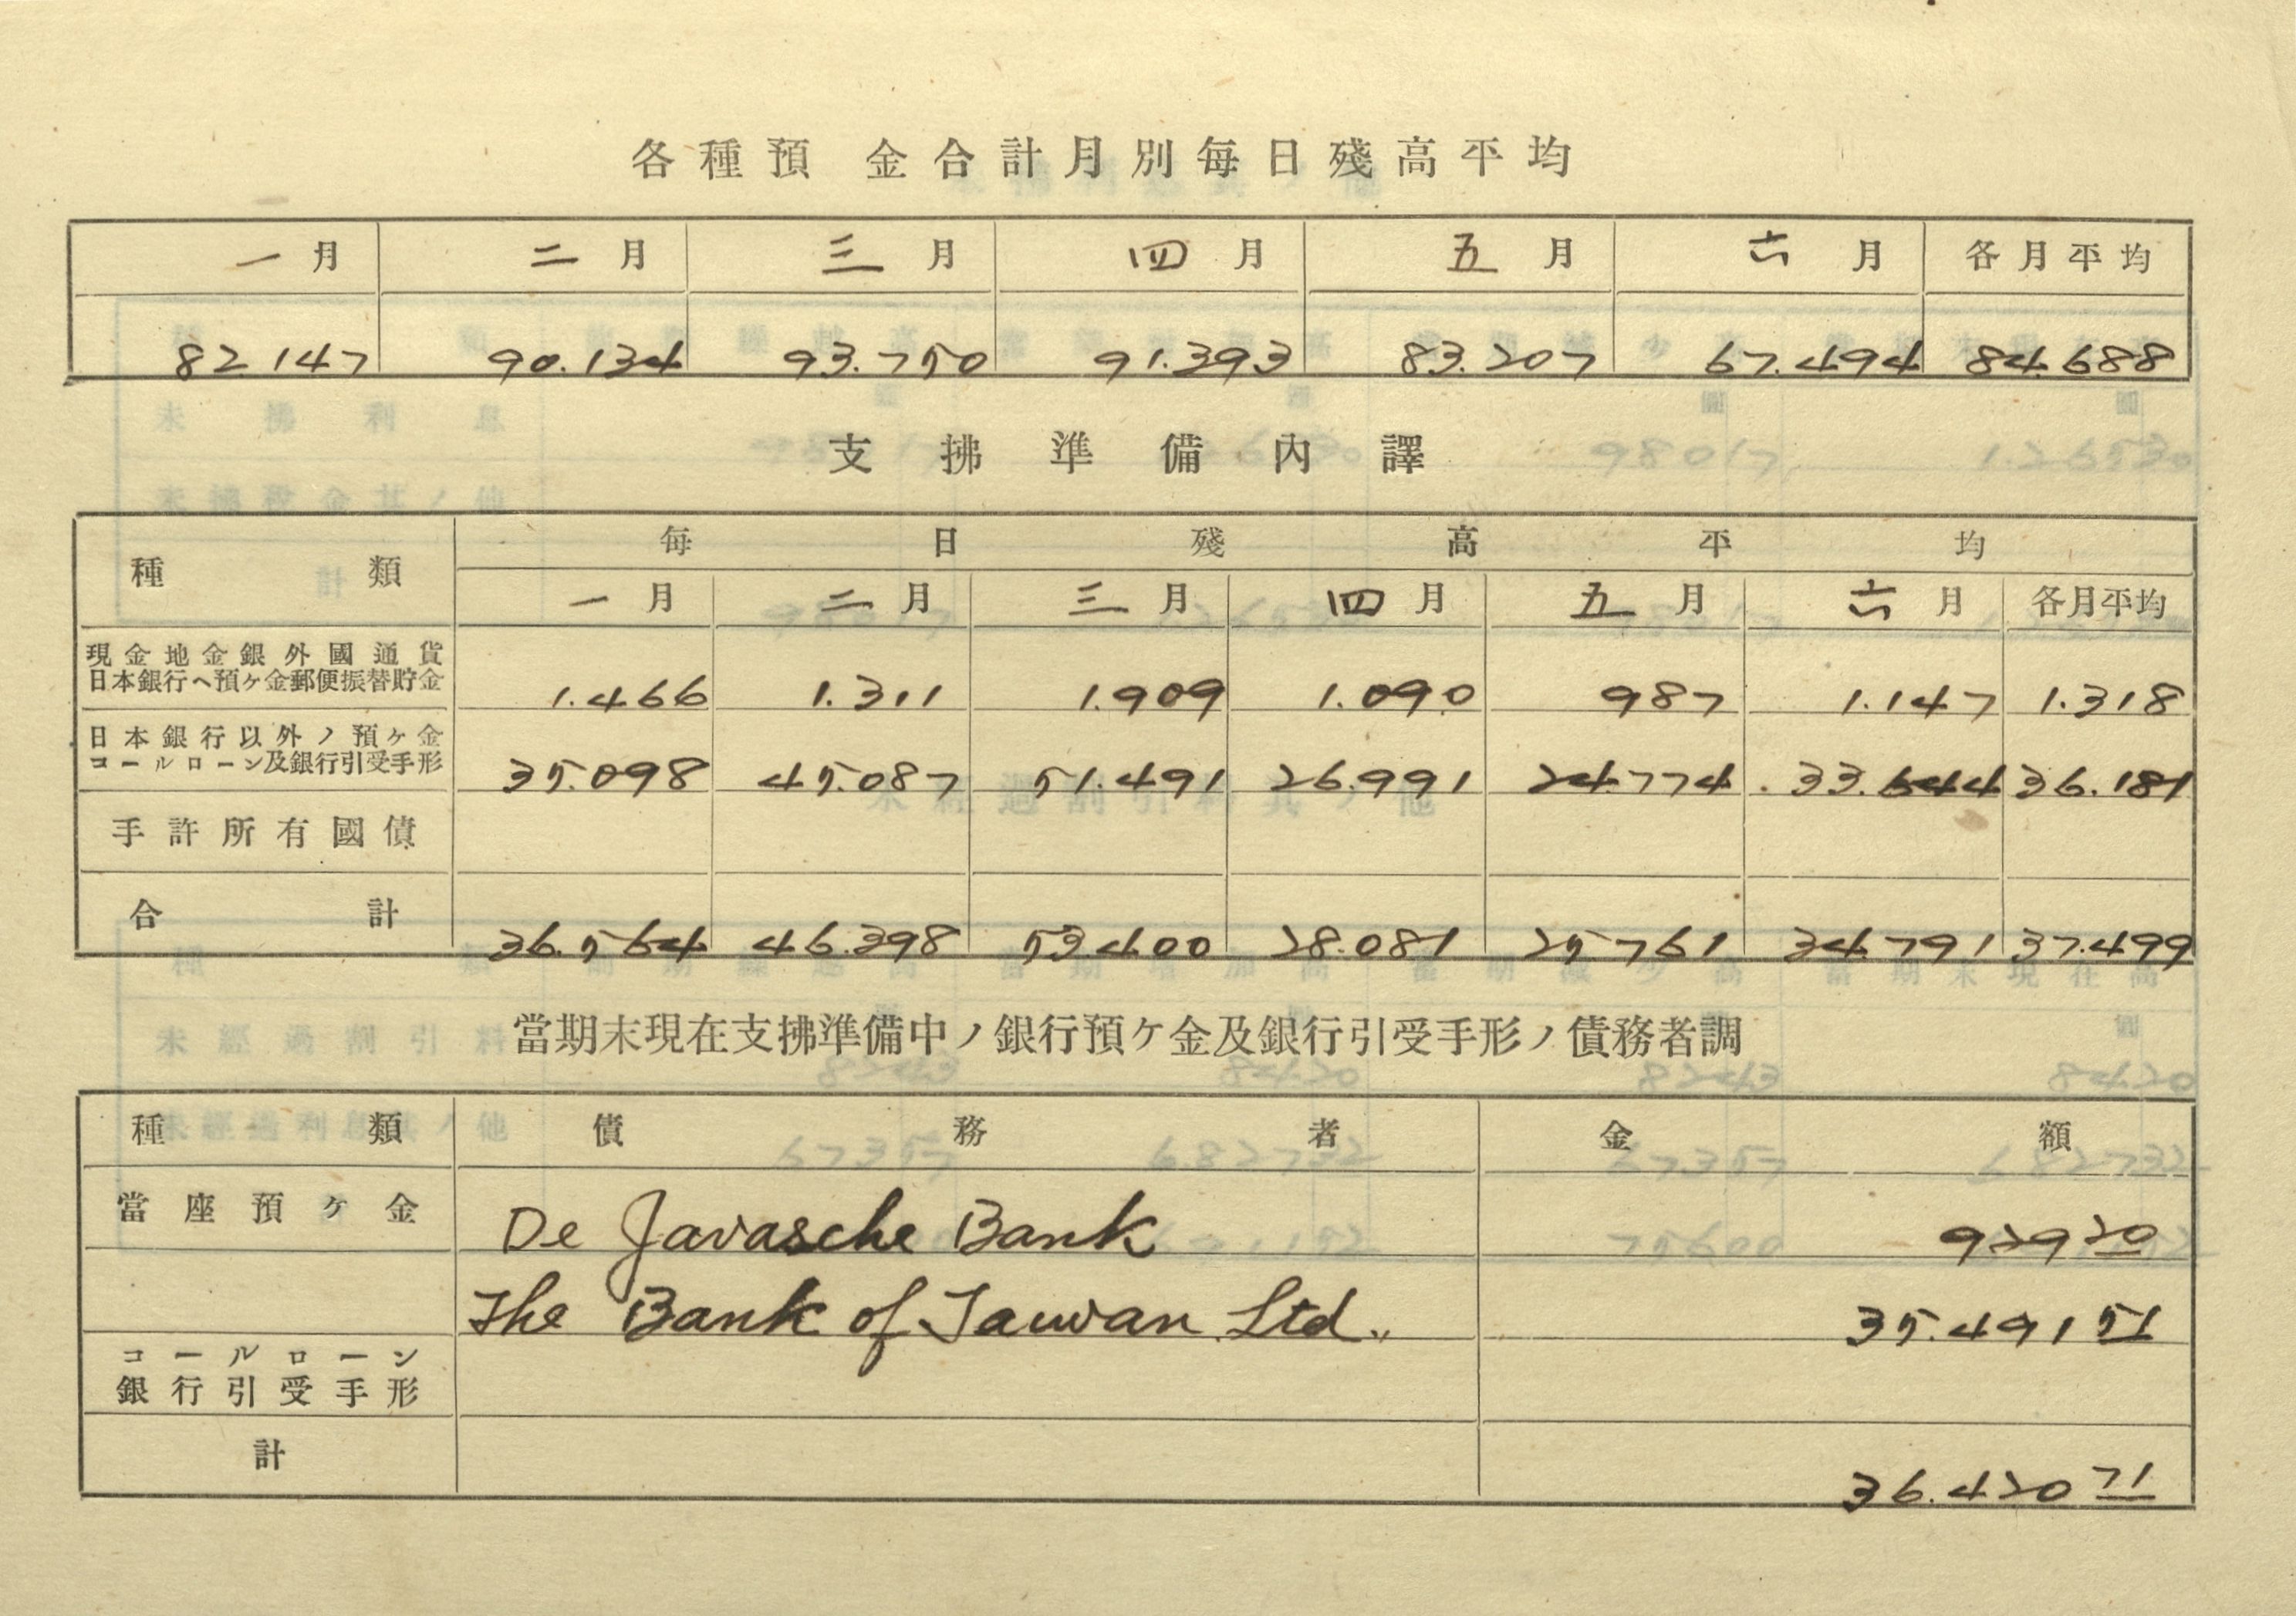 各種預金合計月別毎日殘高平均
一月 二月 三月 四月 五月 六月 各月平均
82.147 90.134 93.750 91.393 83.207 67.494 84.688
支拂準備内譯
種類 毎日殘高平均
一月 二月 三月 四月 五月 六月 各月平均
現金地金銀外國通貨
日本銀行ヘ預ヶ金郵便振替貯金 1.466 1.311 1.909 1.090 987 1.147 1.318
日本銀行以外ノ預ヶ金
コールローン及銀行引受手形 35.098 45.087 51.491 26.991 24.774 33.644 36.181
手許所有國債
合計 36.564 46.398 53.400 28.081 25.761 34.791 37.499
當期末現在支拂準備中ノ銀行預ケ金及銀行引受手形ノ債務者調
種類 債務者 金額
當座預ケ金 De Javasche Bank 929 20
The Bank of Taiwan Ltd., 35.491 51
コールローン
銀行引受手形
計 36.420 71